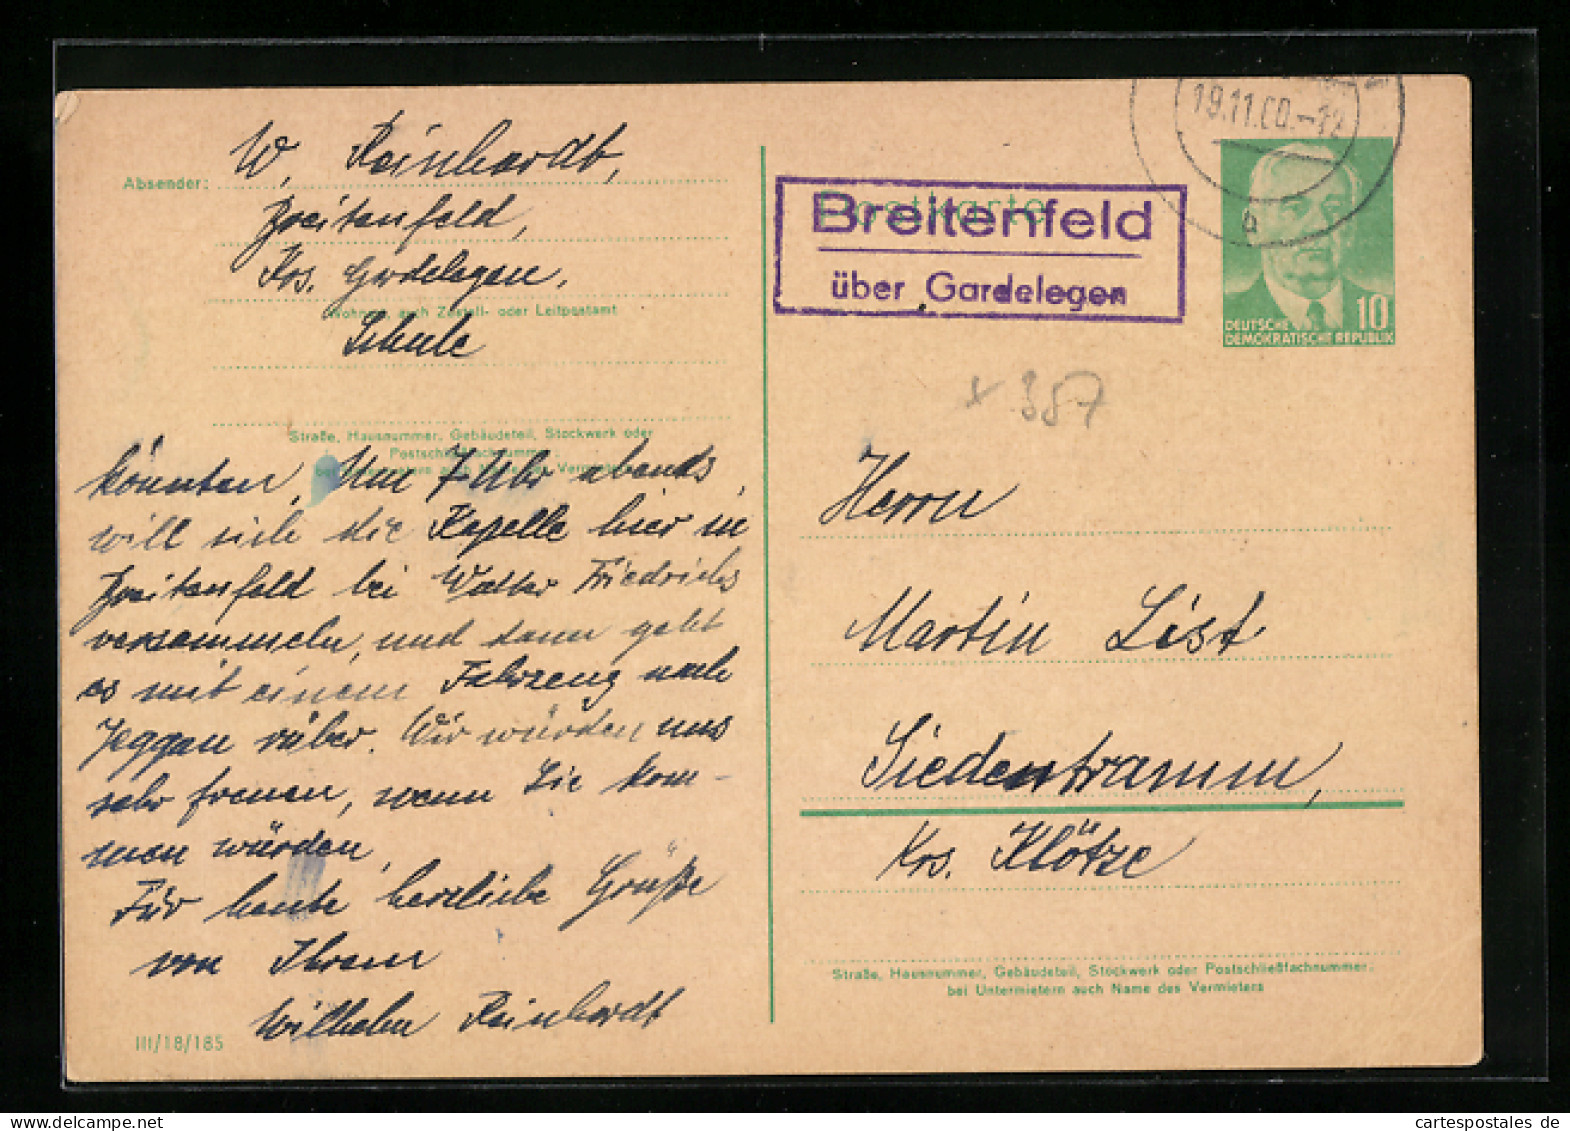 Absender:
W. Reinhardt,
Breitenfeld,
Krs. Gardelegen,
Wohnort, auch Zustell- oder Leitpostamt
Schule
Straße, Hausnummer, Gebäudeteil, Stockwerk oder
Postschließfachnummer;
bei Untermietern auch Name des Vermieters
könnten. Um 7 Uhr abends
will sich die Kapelle hier in
Breitenfeld bei Walter Friedrichs
versammeln, und dann geht
es mit einem Fahrzeug nach
Jeggau rüber. Wir würden uns
sehr freuen, wenn Sie kom-
men würden.
Für heute herzliche Grüße
von Ihrem
Wilhelm Reinhardt
III/18/185
Postkarte
Breitenfeld
über Gardelegen
19.11.60.-12
a
10
DEUTSCHE
DEMOKRATISCHE REPUBLIK
x 387
Herrn
Martin List
Siedentramm,
Krs. Klötze
Straße, Hausnummer, Gebäudeteil, Stockwerk oder Postschließfachnummer;
bei Untermietern auch Name des Vermieters
cartespostales de